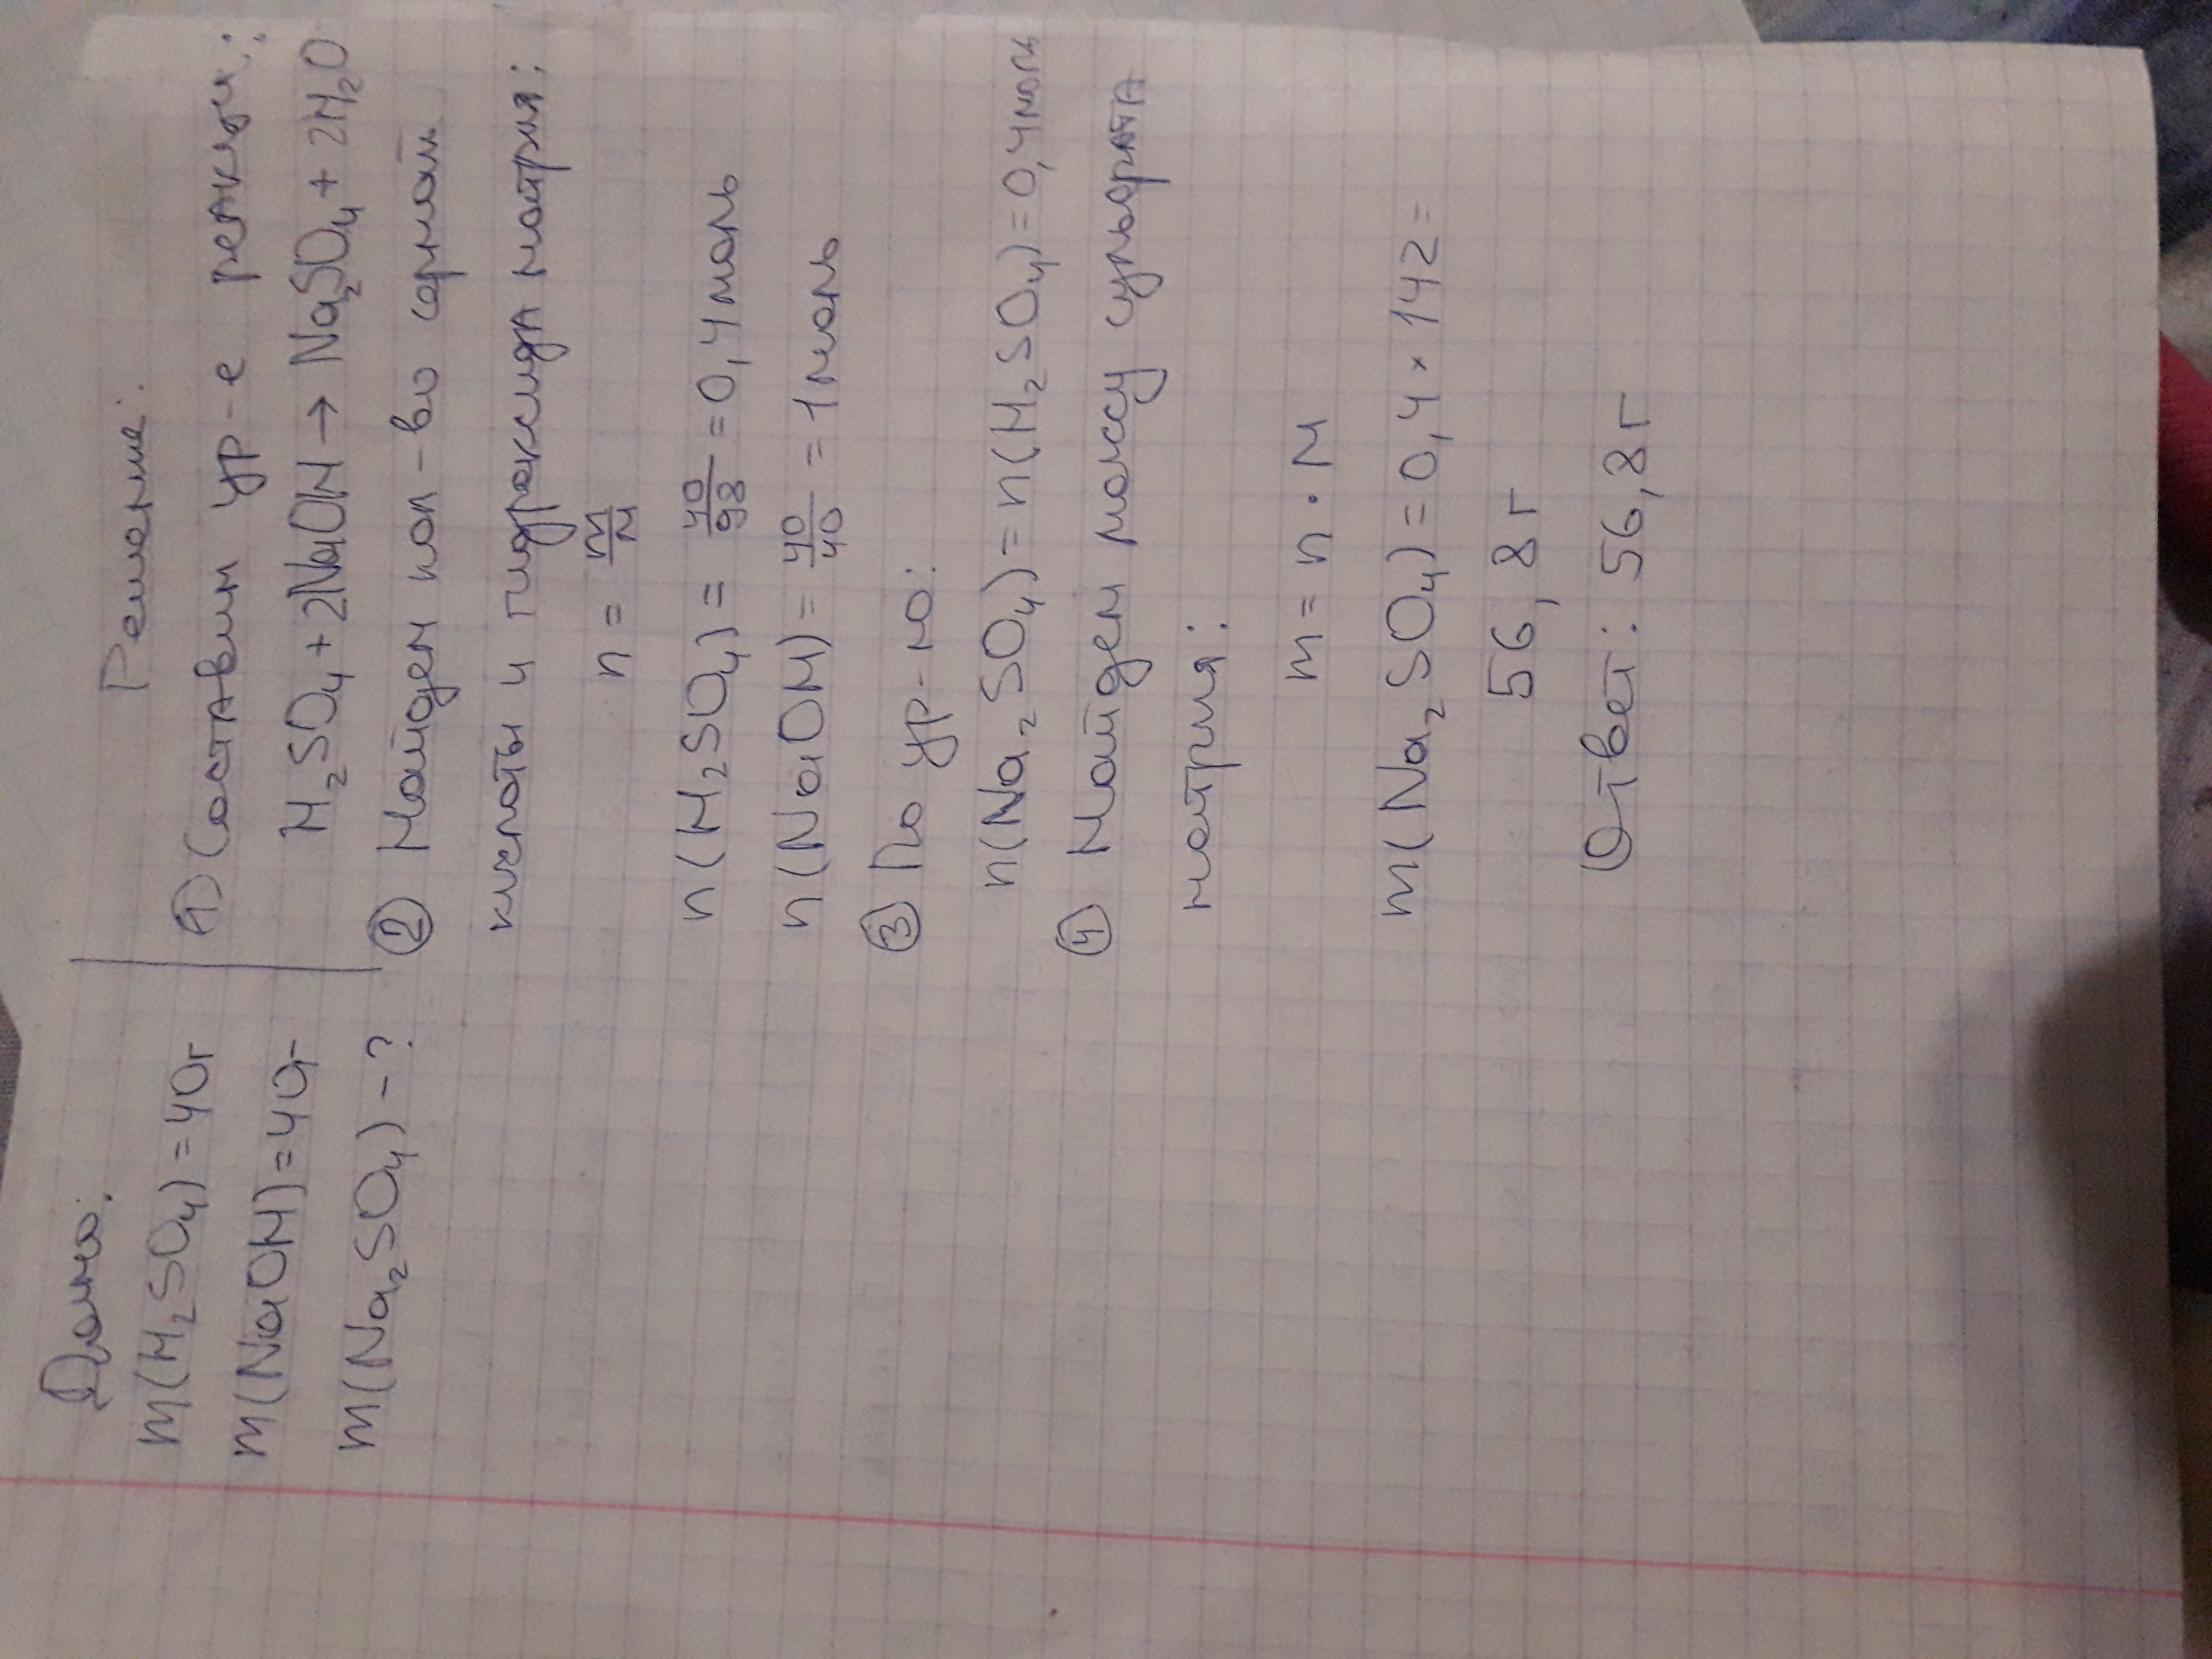 Дано:
m(H₂SO₄)=40г
m(NaOH)=40г
m(Na₂SO₄)-?
Решение:
① Составим ур-е реакции:
H₂SO₄+2NaOH→Na₂SO₄+2H₂O
② Найдем кол-во серной
кислоты и гидроксида натрия:
n = m/M
n(H₂SO₄) = 40/98 = 0,4моль
n(NaOH) = 40/40 = 1моль
③ По ур-ю:
n(Na₂SO₄)=n(H₂SO₄)=0,4моль
④ Найдем массу сульфата
натрия:
m = n · M
m(Na₂SO₄)=0,4×142=
56,8г
Ответ: 56,8г